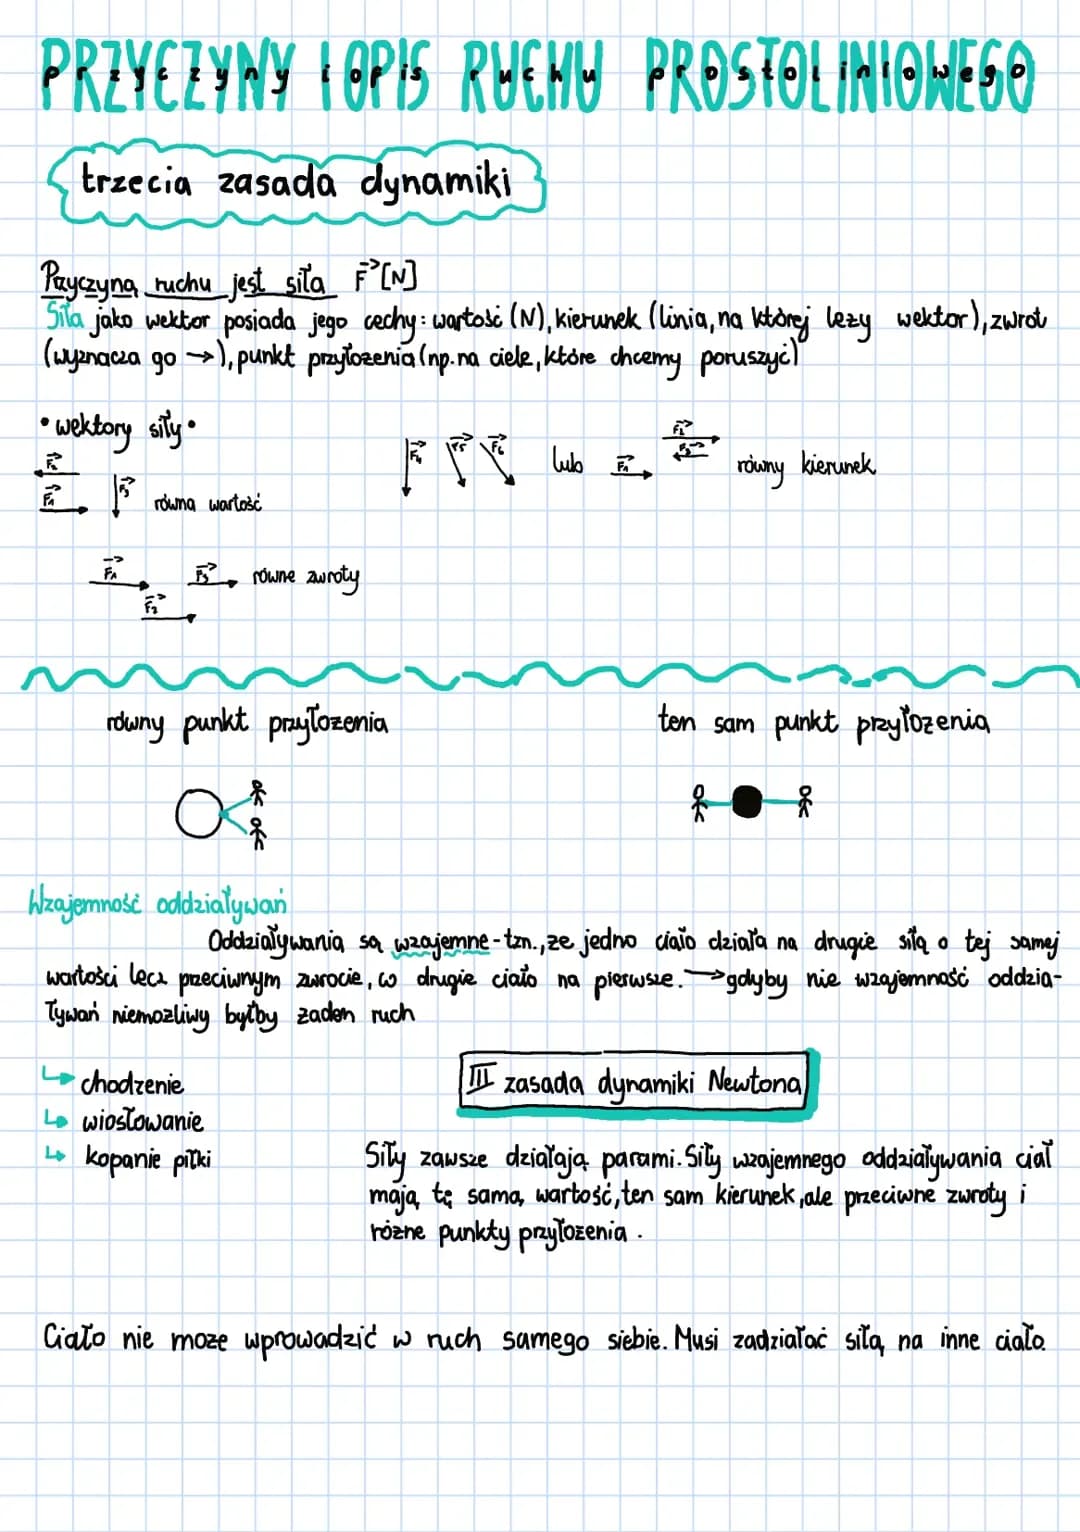 PRZYCZYNY I OPIS RUCHU PROSTOLINIOWEGO
trzecia zasada dynamiki
Przyczyną ruchu jest siła F [N]
Siła jako wektor posiada jego cechy: wartość (N), kierunek (linia, na której leży wektor), zwrot
(wyznacza go →), punkt przyłożenia (np. na ciele, które chcemy poruszyć)
• wektory siły •
F₂
F₁
F₃
równa wartość
F₄ F₅ F₆ lub F₁
F₁
F₂
równy kierunek
F₁ F₃ równe zwroty
F₂
równy punkt przyłożenia
ten sam punkt przyłożenia
Wzajemność oddziaływań
Oddziaływania są wzajemne - tzn., że jedno ciało działa na drugie siłą o tej samej
wartości lecz przeciwnym zwrocie, co drugie ciało na pierwsze. → gdyby nie wzajemność oddzia-
ływań niemożliwy byłby żaden ruch
↳ chodzenie
↳ wiosłowanie
↳ kopanie piłki
III zasada dynamiki Newtona
Siły zawsze działają parami. Siły wzajemnego oddziaływania ciał
mają tę samą wartość, ten sam kierunek, ale przeciwne zwroty i
różne punkty przyłożenia.
Ciało nie może wprowadzić w ruch samego siebie. Musi zadziałać siłą na inne ciało.